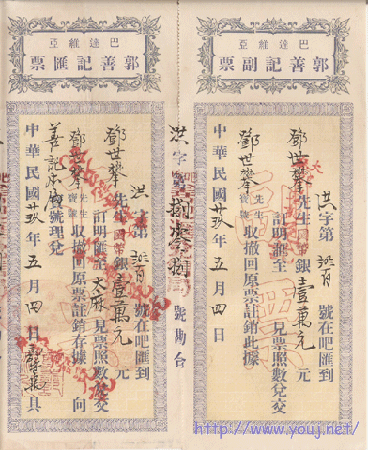 巴達維亞
郭善記副票
洪字第 號在吧匯到
鄧世攀先生國幣銀壹萬元
訂明匯至 見票照數兌交
鄧世攀先生寶號取撤回原票註銷此據
中華民國廿玖年五月四日
洪字第捌零捌號勘合
巴達維亞
郭善記匯票
洪字第 號在吧匯到
鄧世攀先生國幣銀壹萬元
訂明匯至大麻見票照數 交
鄧世攀先生寶號取撤回原票註銷存據 向
善記 寶號理兌
中華民國廿玖年五月四日 具
http://www.youj.net/